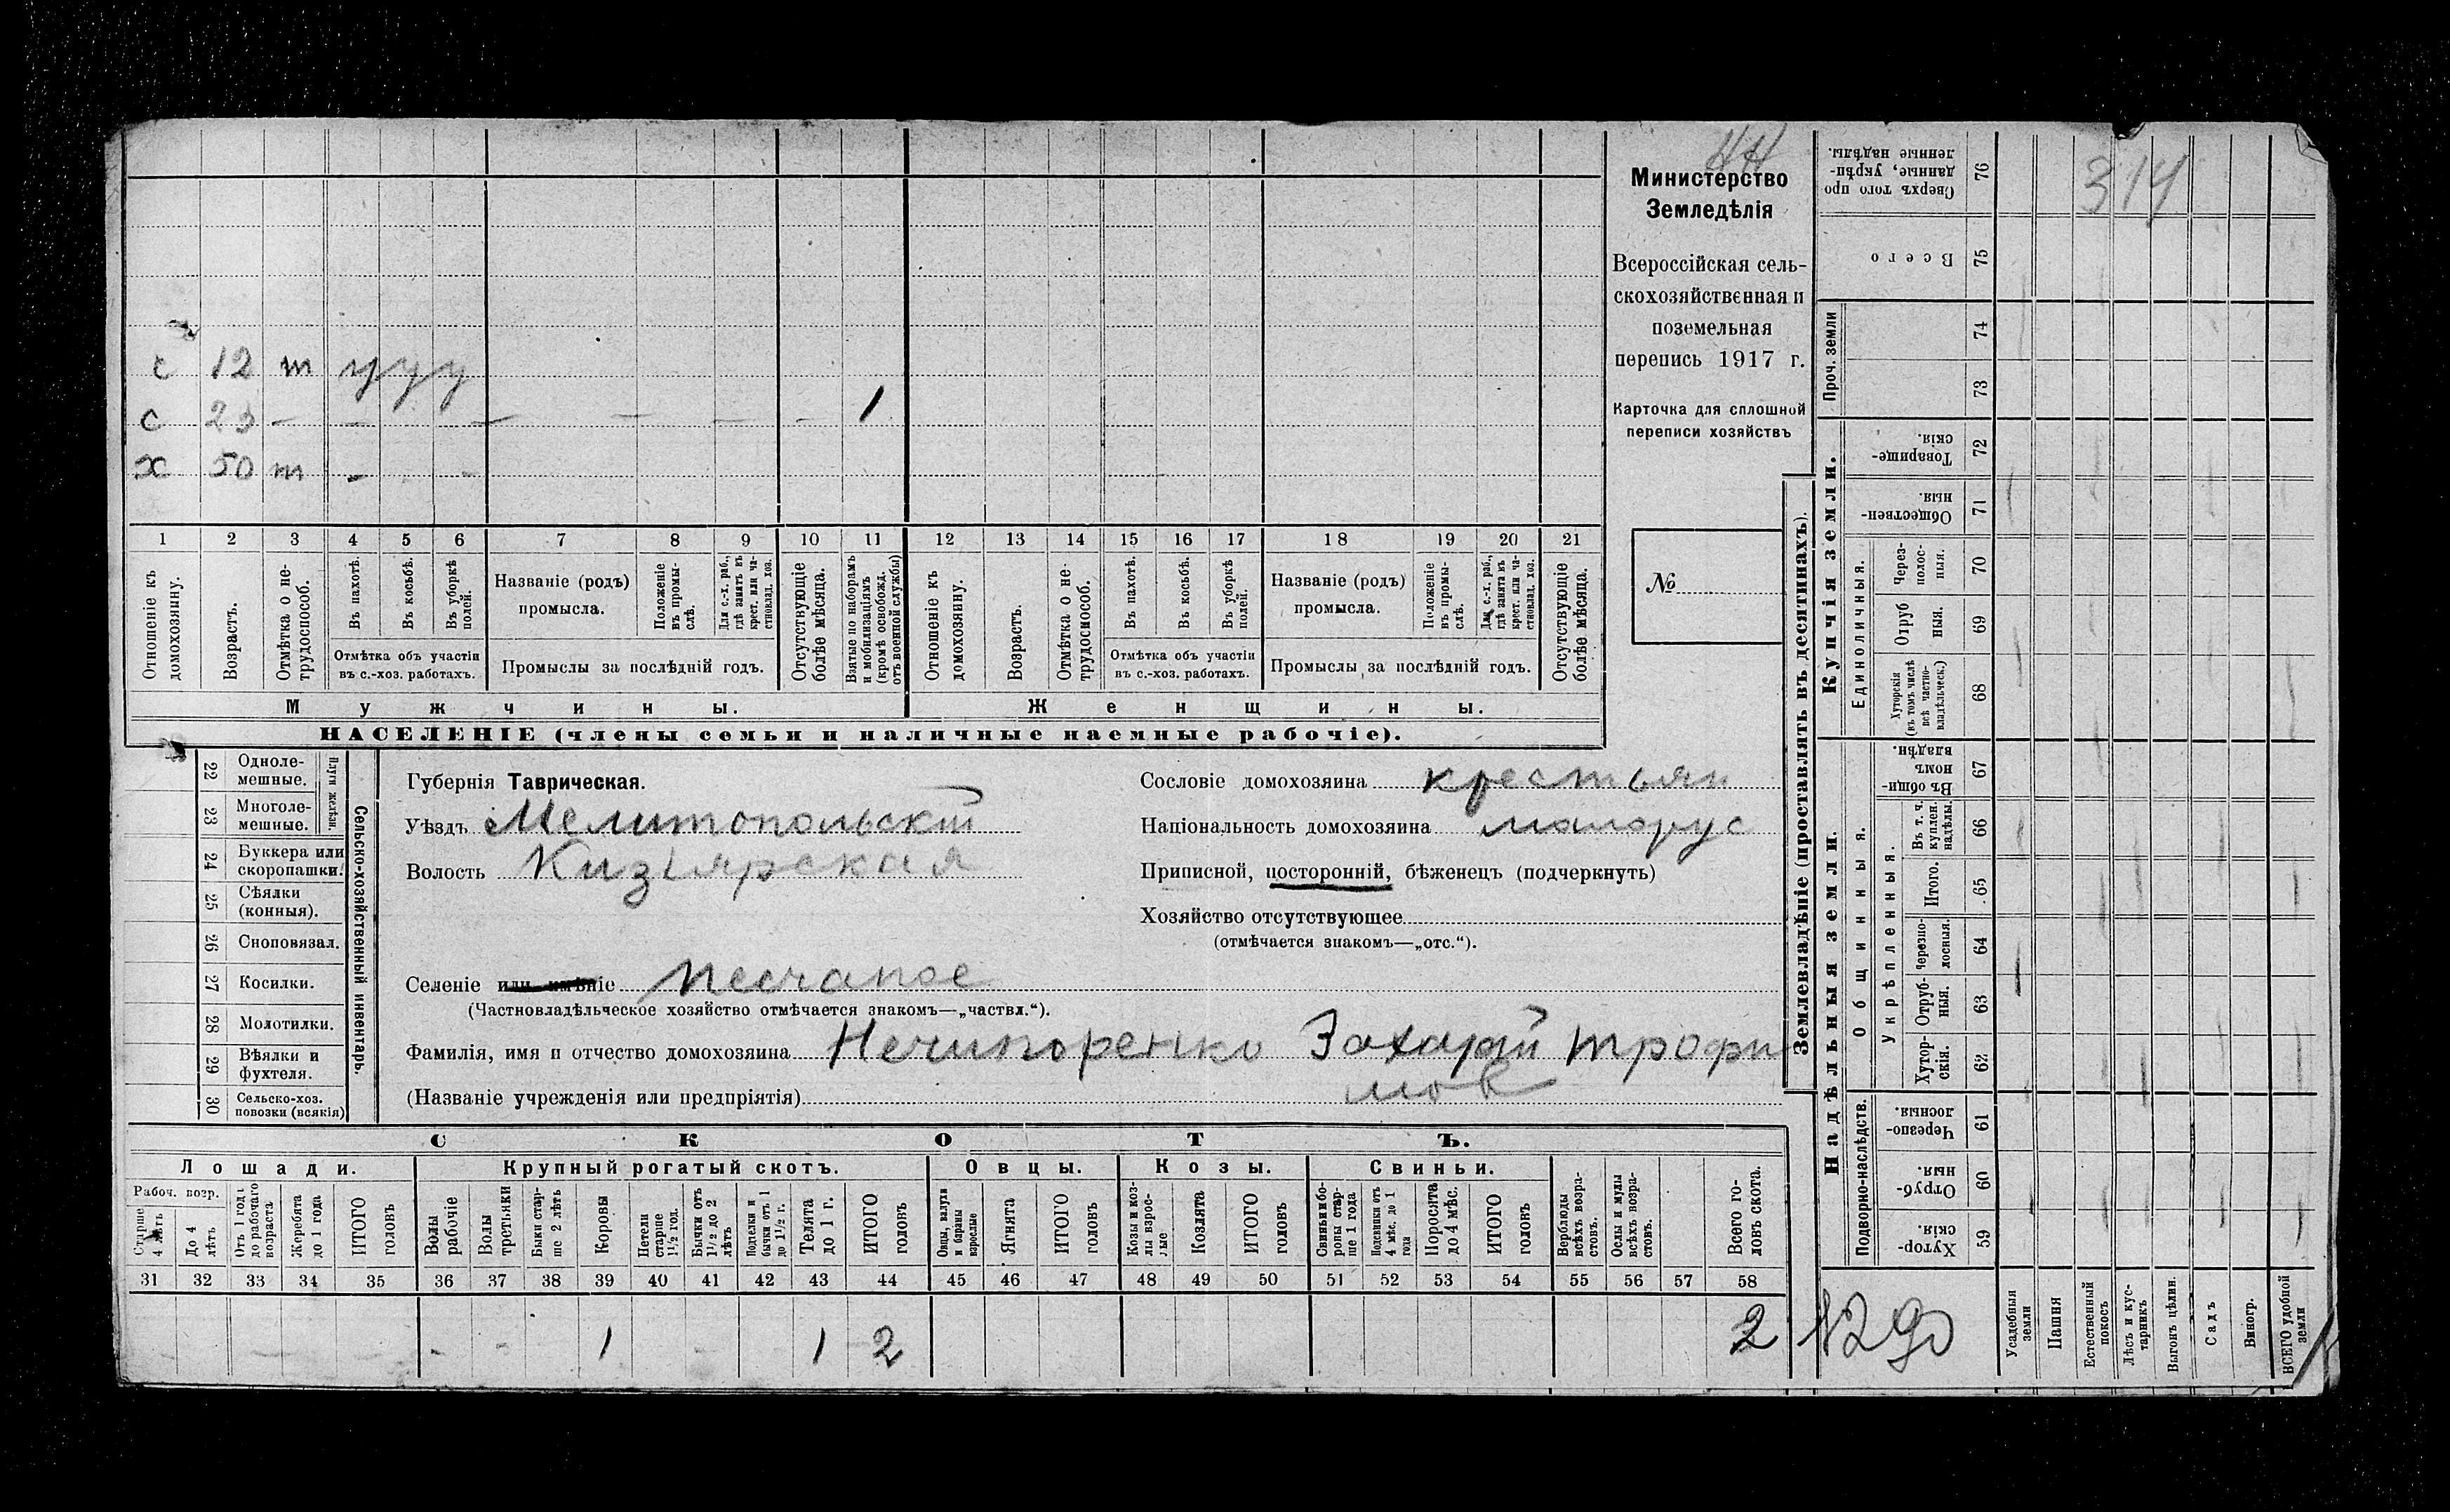 НН
314
с 12 т у у у
с 23 — — — — — — 1
х 50 т - -
1 2 3 4 5 6 7 8 9 10 11 12 13 14 15 16 17 18 19 20 21
Отношеніе къ домохозяину.
Возрастъ.
Отмѣтка о не-трудоспособ.
Въ пахотѣ.
Въ косьбѣ.
Въ уборкѣ полей.
Отмѣтка объ участіи
въ с.-хоз. работахъ.
Названіе (родъ)
промысла.
Положеніе въ промы-слѣ.
Для с.-х. раб., гдѣ занятъ въ крест. или ча-стновлад. хоз.
Промыслы за послѣдній годъ.
Отсутствующіе болѣе мѣсяца.
Взятые по наборамъ и мобилизаціямъ (кромѣ освобожд. отъ военной службы)
Отношеніе къ домохозяину.
Возрастъ.
Отмѣтка о не-трудоспособ.
Въ пахотѣ.
Въ косьбѣ.
Въ уборкѣ полей.
Отмѣтка объ участіи
въ с.-хоз. работахъ.
Названіе (родъ)
промысла.
Положеніе въ промы-слѣ.
Для с.-х. раб., гдѣ занята въ крест. или ча-стновлад. хоз.
Промыслы за послѣдній годъ.
Отсутствующіе болѣе мѣсяца.
Мужчины.
Женщины.
НАСЕЛЕНІЕ (члены семьи и наличные наемные рабочіе).
Министерство
Земледѣлія
Всероссійская сель-
скохозяйственная и
поземельная
перепись 1917 г.
Карточка для сплошной
переписи хозяйствъ
№
22 Одноле-мешные.
23 Многоле-мешные.
Плуги желѣзн.
24 Буккера или скоропашки.
25 Сѣялки (конныя).
26 Сноповязал.
27 Косилки.
28 Молотилки.
29 Вѣялки и фухтеля.
30 Сельско-хоз. повозки (всякія)
Сельско-хозяйственный инвентарь.
Губернія Таврическая.
Уѣздъ Мелитопольскій
Волость Кизіярская
Селеніе или имѣніе Песчаное
(Частновладѣльческое хозяйство отмѣчается знакомъ—„частвл.“).
Фамилія, имя и отчество домохозяина Нечипоренко Захарій Трофи
мов
(Названіе учрежденія или предпріятія)
Сословіе домохозяина крестьян
Національность домохозяина малорус
Приписной, посторонній, бѣженецъ (подчеркнуть)
Хозяйство отсутствующее
(отмѣчается знакомъ—„отс.“).
СКОТЪ.
Лошади.
Рабоч. возр.
Старше 4 лѣтъ
До 4 лѣтъ
Отъ 1 года до рабочаго возраста
Жеребята до 1 года
ИТОГО головъ
Крупный рогатый скотъ.
Волы рабочіе
Волы третьяки
Быки стар-ше 2 лѣтъ
Коровы
Нетели старше 1½ год.
Бычки отъ 1½ до 2 лѣтъ
Подтелки и бычки отъ 1 до 1½ г.
Телята до 1 г.
ИТОГО головъ
Овцы.
Овцы, валухи и бараны взрослые
Ягнята
ИТОГО головъ
Козы.
Козы и коз-лы взрос-лые
Козлята
ИТОГО головъ
Свиньи.
Свиньи и бо-ровы стар-ше 1 года
Подсвинки отъ 4 мѣс. до 1 года
Поросята до 4 мѣс.
ИТОГО головъ
Верблюды всѣхъ возра-стовъ.
Ослы и мулы всѣхъ возра-стовъ.
Всего го-ловъ скота.
31 32 33 34 35 36 37 38 39 40 41 42 43 44 45 46 47 48 49 50 51 52 53 54 55 56 57 58
1 1 2 2
1290
Землевладѣніе (проставлять въ десятинахъ).
Сверхъ того про данные, укрѣп-ленные надѣлы. 76
Всего 75
Проч. земли 74
73
Купчія земли.
Товарище-скія. 72
Обществен-ныя. 71
Единоличныя.
Через-полос-ныя. 70
Отруб ныя. 69
Хуторскія (въ томъ числѣ всѣ частно-владѣльческ.) 68
Надѣльныя земли.
Общинныя.
Въ общи-номъ владѣн. 67
Укрѣпленныя.
Въ т. ч. куплен. надѣлы. 66
Итого. 65
Черезпо-лосныя. 64
Отруб-ныя. 63
Хутор-скія. 62
Подворно-наслѣдств.
Черезпо-лосныя. 61
Отруб-ныя. 60
Хутор-скія. 59
Усадебныя земли
Пашня
Естественный покосъ
Лѣсъ и кус-тарникъ
Выгонъ цѣлин.
Садъ
Виногр.
ВСЕГО удобной земли